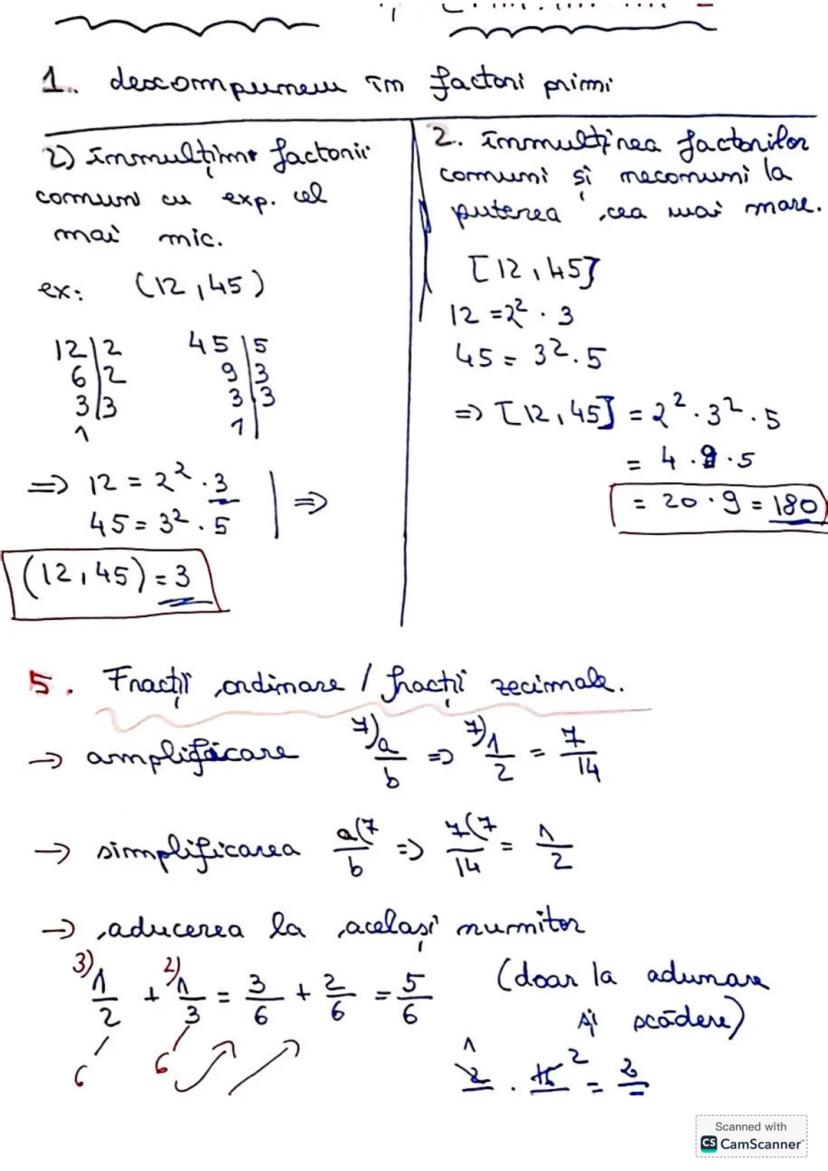 1. descompunem în factori primi
2) înmulțim factorii
comuni cu exp. cel
mai mic.
ex: (12,45)
12|2 45|5
6|2 9|3
3|3 3|3
1 1|
=> 12 = 2² · 3
45 = 3² · 5 | =>
(12,45) = 3
2. înmulțirea factorilor
comuni și necomuni la
puterea cea mai mare.
[12,45]
12 = 2² · 3
45 = 3² · 5
=> [12,45] = 2² · 3² · 5
= 4 · 9 · 5
= 20 · 9 = 180
5. Fracții ordinare / fracții zecimale.
→ amplificare 7)a/b => 7)1/2 = 7/14
→ simplificarea a(7/b => 7(7/14 = 1/2
→ aducerea la același numitor
3)1/2 + 2)1/3 = 3/6 + 2/6 = 5/6
6 6
(doar la adunare
și scădere)
Scanned with
CS CamScanner